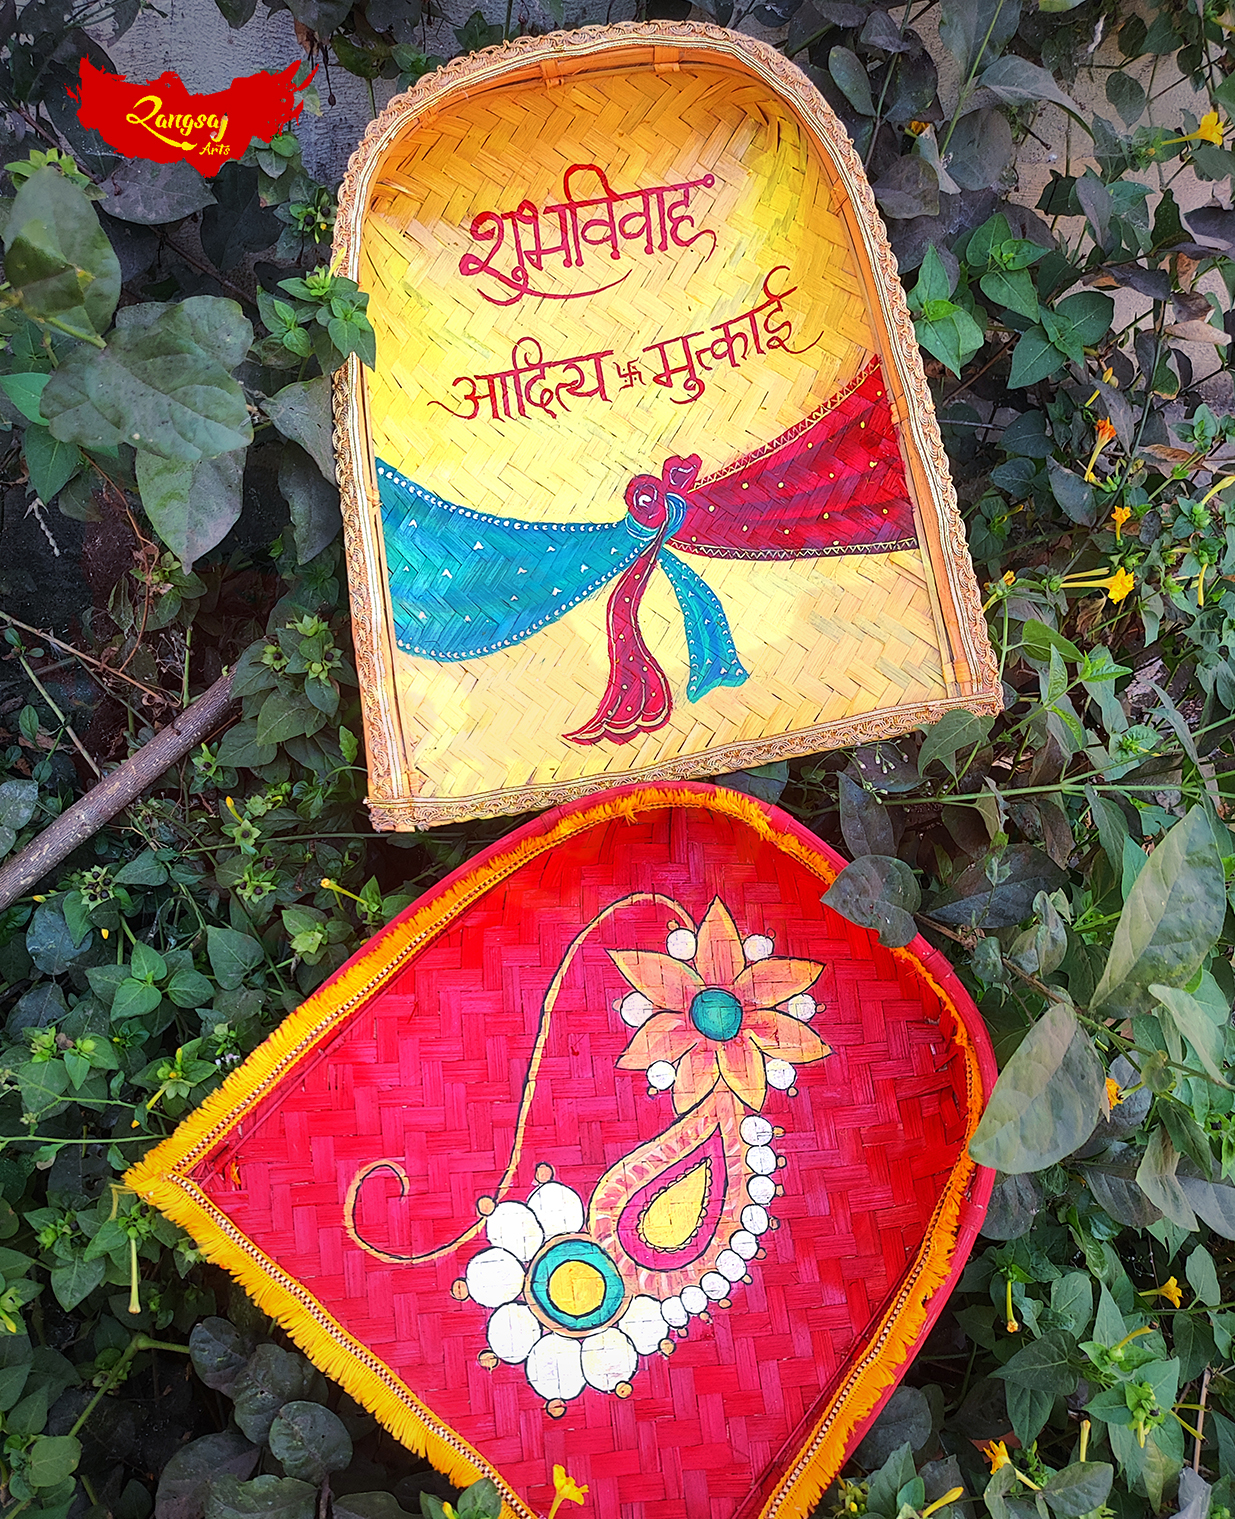 Rangsaj
Arts
शुभविवाह
आदित्य 卐 मुत्काई